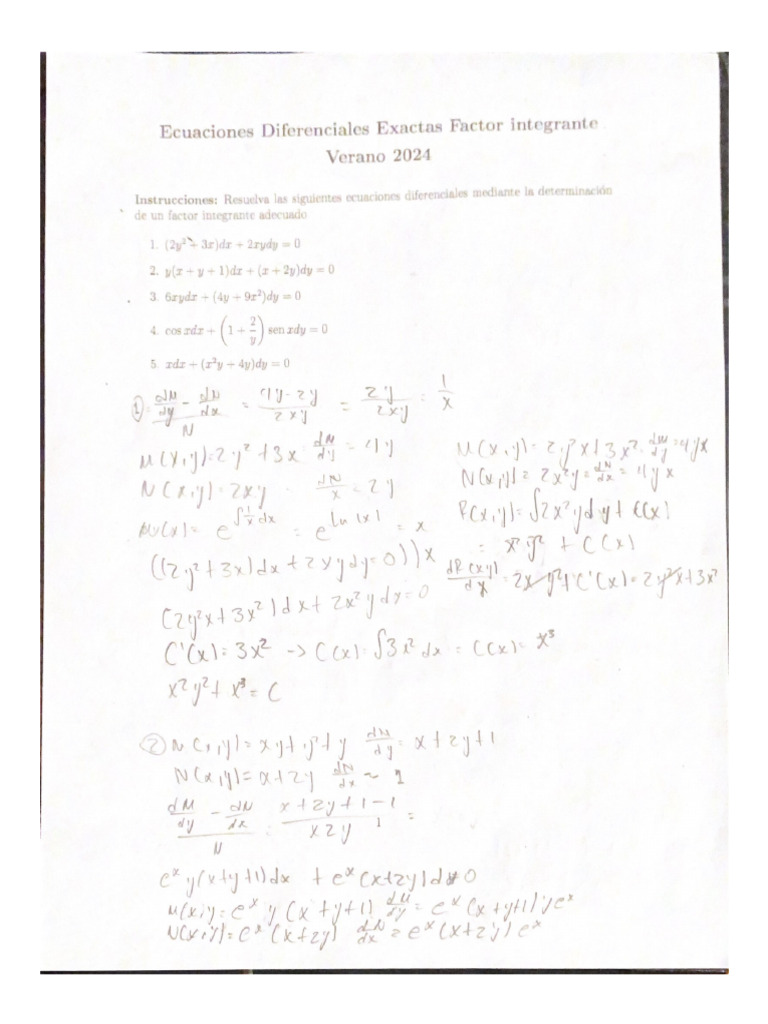 Ecuaciones Diferenciales Exactas Factor integrante
Verano 2024
Instrucciones: Resuelva las siguientes ecuaciones diferenciales mediante la determinación
de un factor integrante adecuado
1. (2y² + 3x)dx + 2xydy = 0
2. y(x + y + 1)dx + (x + 2y)dy = 0
3. 6xydx + (4y + 9x²)dy = 0
4. cos xdx + (1 + 2/y) sen xdy = 0
5. xdx + (x²y + 4y)dy = 0
① = (dM/dy - dN/dx)/N = (4y-2y)/2xy = 2y/2xy = 1/x
M(x,y)=2y²+3x dM/dy = 4y
N(x,y)=2xy dN/x = 2y
μ(x)= e^∫1/x dx = e^ln|x| = x
((2y²+3x)dx+2xydy=0))x
(2y²x+3x²)dx+2x²ydx=0
C'(x)=3x² -> C(x)=∫3x²dx = C(x)= x³
x²y²+x³=C
M(x,y)=2y²x+3x² dM/dy=4yx
N(x,y)=2x²y=dN/dx=4yx
P(x,y)=∫2x²ydy+C(x)
= x²y²+C(x)
dP(xy)/dx=2xy²+C'(x)=2y²x+3x²
② N(x,y)=xy+y²+y dM/dy=x+2y+1
N(x,y)=x+2y dN/dx ~ 1
(dM/dy - dN/dx)/N : (x+2y+1-1)/(x2y) 1 =
eˣy(x+y+1)dx +eˣ(x+2y)dx=0
M(x,y=eˣy(x+y+1) dM/dy=eˣ(x+y+1)yeˣ
N(x,y)=eˣ(x+2y) dN/dx=eˣ(x+2y)eˣ